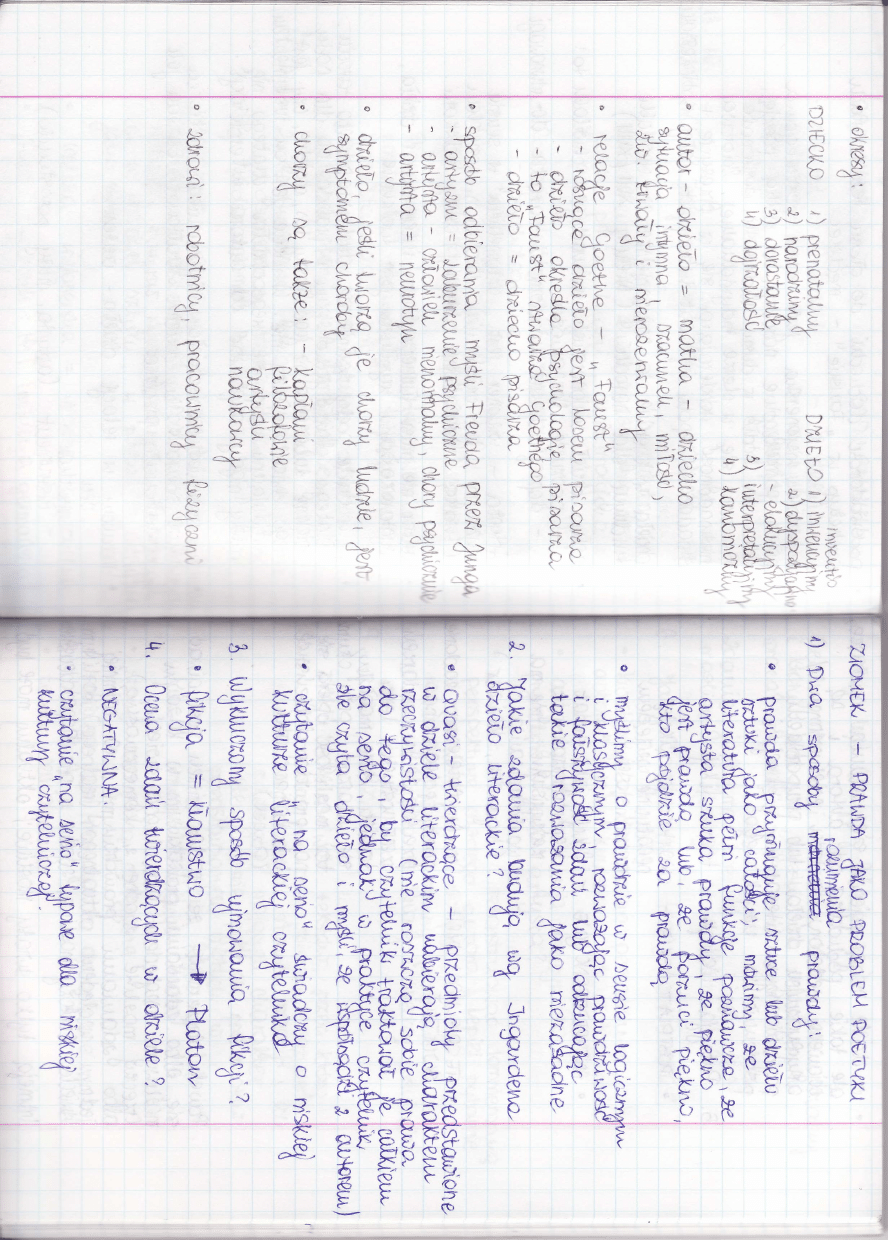 • okresy:
DZIECKO 1) prenatalny
2) narodziny
3) dorastanie
4) dojrzałość
inventio
DZIEŁO 1) inwencyjny
2) dyspozycyjne
- elokucyjny
3) interpretacyjny
4) kanoniczny
• autor - dzieło = matka - dziecko
sytuacja intymna, szacunek, miłość,
zw. trwały i nierozerwalny
• relacje Goethe - „Faust"
- rosnące dzieło jest losem pisarza
- dzieło określa psychologię pisarza
- to „Faust" stwarza Goethego
- dzieło = dziecko pisarza
• sposób odbierania myśli Freuda przez Junga
- artyzm = zaburzenie psychiczne
- artysta - człowiek nienormalny, chory psychicznie
- artysta = neurotyk
• dzieło, jeśli tworzą je chorzy ludzie, jest
symptomem choroby
• chorzy są także: - kapłani
filozofowie
artyści
naukowcy
• zdrowi: robotnicy, pracownicy fizyczni
ZIOMEK - PRAWDA JAKO PROBLEM POETYKI
rozumienia
1) Dwa sposoby prawdy:
• prawda przysługuje sztuce lub dziełu
sztuki jako całości; mówimy, że
literatura pełni funkcje poznawcze, że
artysta szuka prawdy, że piękno
jest prawdą lub, że porzuci piękno,
kto pójdzie za prawdą
• myślimy o prawdzie w sensie logicznym
i klasycznym, rozważając prawdziwość
i fałszywość zdań lub odrzucając
takie rozważania jako niezasadne
2. Jakie zdania budują wg Ingardena
dzieło literackie?
• quasi - twierdzące - przedmioty przedstawione
w dziele literackim nabierają charakteru
rzeczywistości (nie roszczą sobie prawa
do tego, by czytelnik traktował je całkiem
na serio, jednak w praktyce czytelnik
źle czyta dzieło i myśli, że współsądzi z autorem)
• czytanie „na serio" świadczy o niskiej
kulturze literackiej czytelnika
3. Wykluczony sposób ujmowania fikcji?
• fikcja = kłamstwo → Platon
4. Ocena zdań twierdzących w dziele?
• NEGATYWNA.
• czytanie „na serio" typowe dla niskiej
kultury czytelniczej.